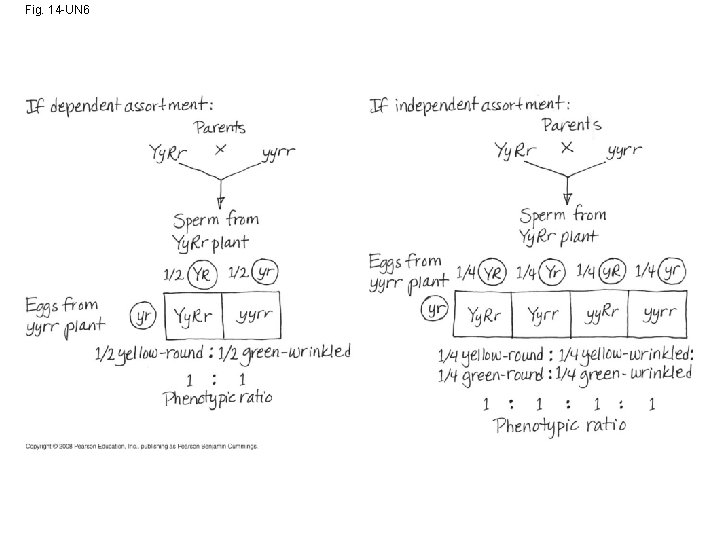 Fig. 14-UN6
If dependent assortment:
Parents
YyRr × yyrr
Sperm from
YyRr plant
1/2 YR 1/2 yr
Eggs from
yyrr plant
yr YyRr yyrr
1/2 yellow-round : 1/2 green-wrinkled
1 : 1
Phenotypic ratio
If independent assortment:
Parents
YyRr × yyrr
Sperm from
YyRr plant
Eggs from
yyrr plant
1/4 YR 1/4 Yr 1/4 yR 1/4 yr
yr YyRr Yyrr yyRr yyrr
1/4 yellow-round : 1/4 yellow-wrinkled:
1/4 green-round : 1/4 green-wrinkled
1 : 1 : 1 : 1
Phenotypic ratio
Copyright © 2008 Pearson Education, Inc., publishing as Pearson Benjamin Cummings.